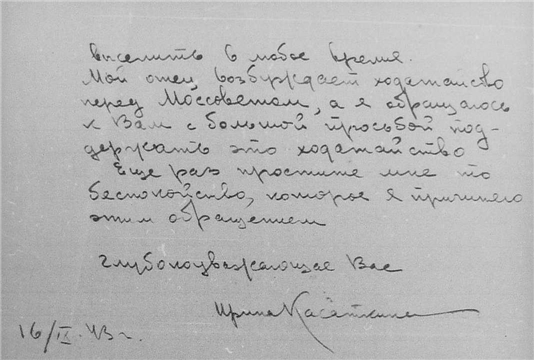 выселить в любое время.
Мой отец возбуждает ходатайство
перед Моссоветом, а я обращаюсь
к Вам с большой просьбой под-
держать это ходатайство
Еще раз простите мне то
беспокойство, которое я причиняю
этим обращением
глубокоуважающая Вас
Ирина Касаткина
16/IX. 43 г.